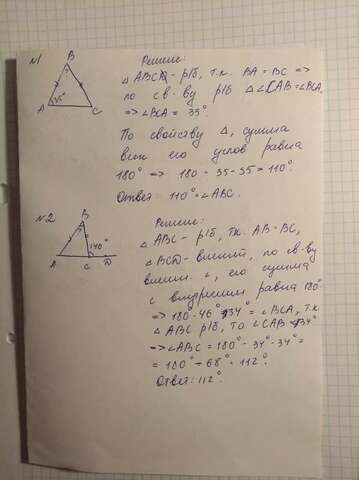 N1
B
35°
A
C
Решение:
△ ABC - р/б, т.к. BA = BC =>
по св-ву р/б △ ∠CAB = ∠BCA
=> ∠BCA = 35°.
По свойству △, сумма
всех его углов равна
180° => 180 - 35 - 35 = 110°.
Ответ: 110° = ∠ABC.
N2
B
140°
A
C
D
Решение:
△ ABC - р/б, т.к. AB = BC,
∠BCD - внешний, по св-ву
внешн. ∠, его сумма
с внутренним равна 180°
=> 180 - 46° 34° = ∠BCA, т.к.
△ ABC р/б, то ∠CAB = 34°
=> ∠ABC = 180° - 34° - 34° =
= 180° - 68° = 112°.
Ответ: 112°.